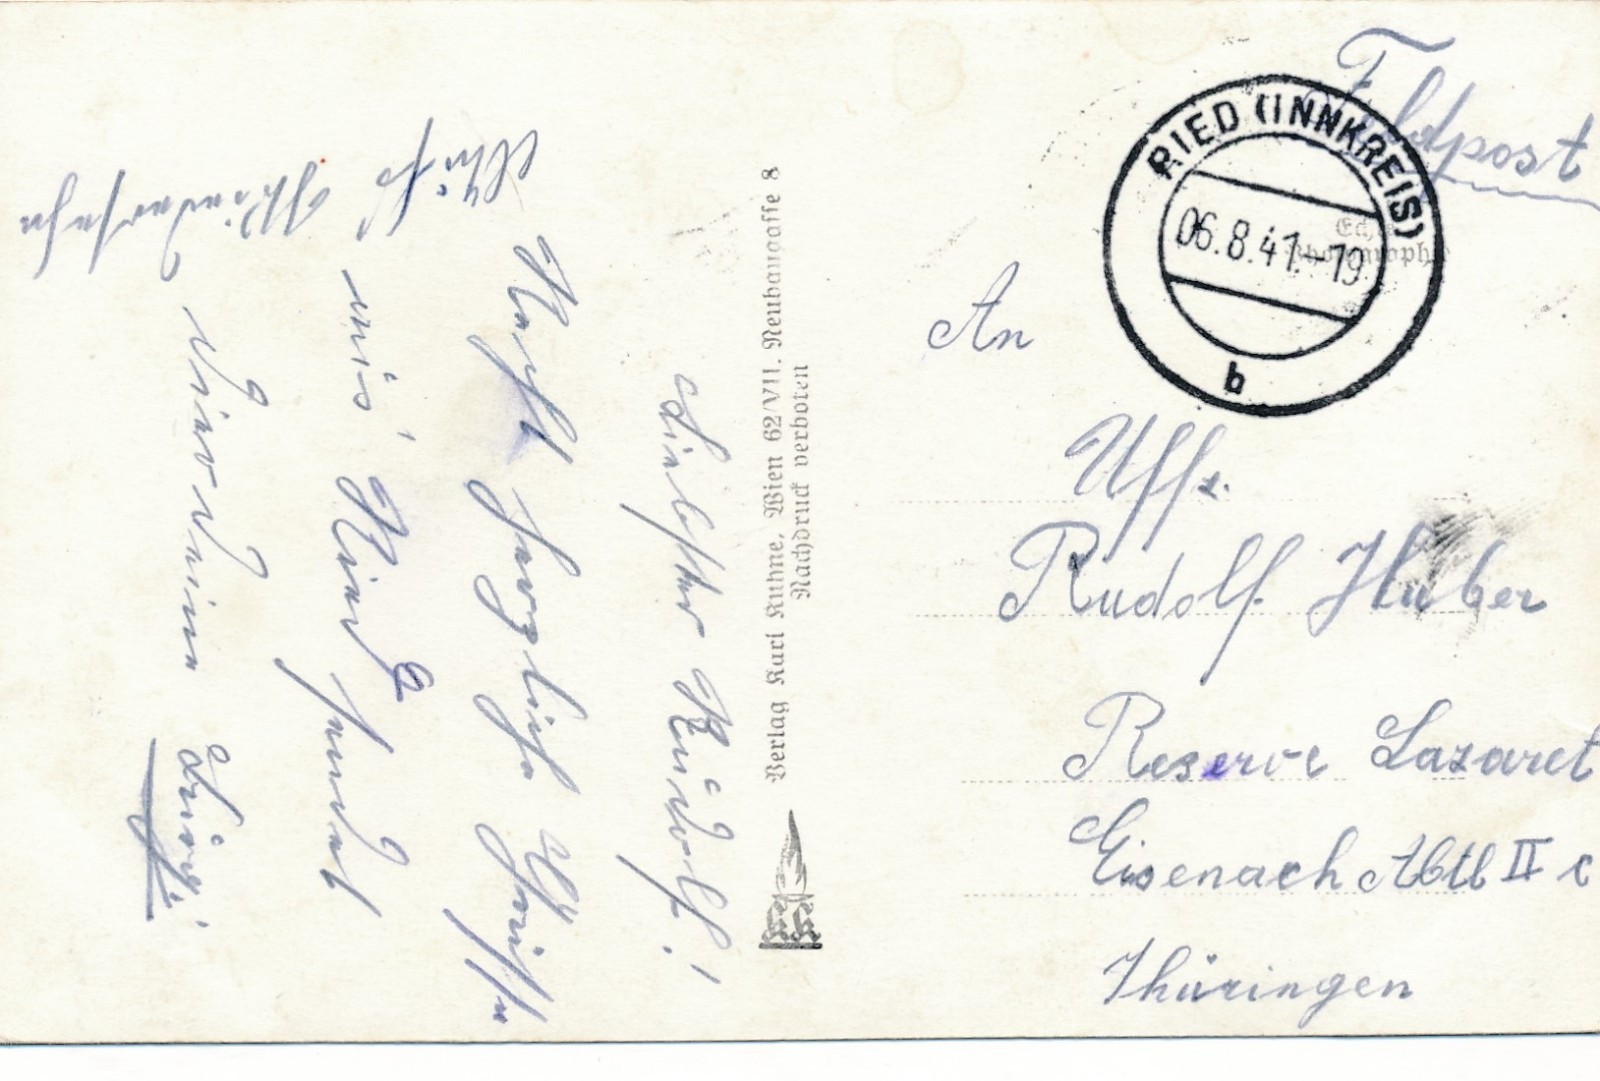 Feldpost
RIED (INNKREIS)
06.8.41.-19
b
Echte
Photographie
An
Uffz.
Rudolf Huber
Reserve Lazaret
Eisenach Abtl II c
Thüringen
Verlag Karl Kühne, Wien 62/VII. Neubaugasse 8
Nachdruck verboten
KK
Liebster Rudolf!
Recht herzliche Grüsse
aus Ried sendet
Dir Deine Luise
Auf
Wiedersehn